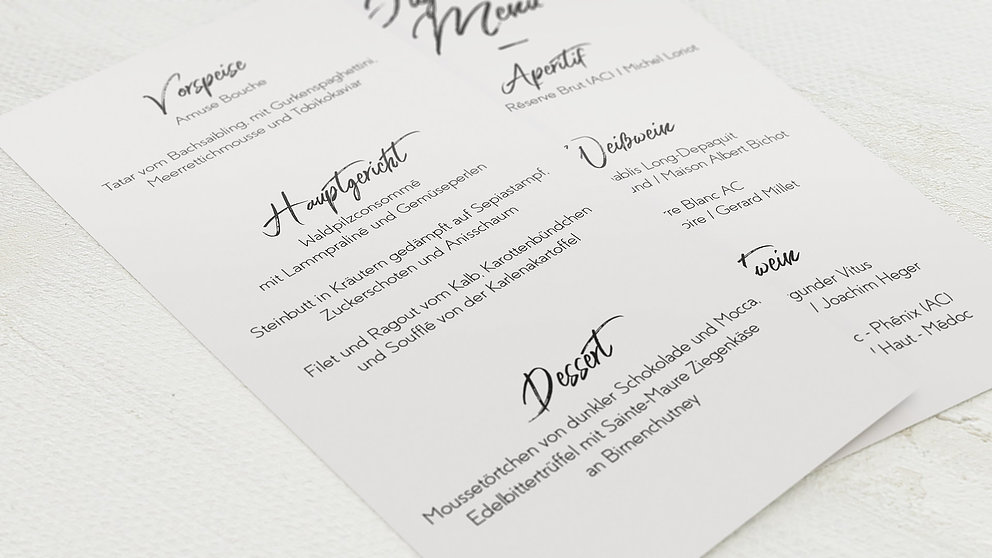 Menü
Vorspeise
Amuse Bouche
Tatar vom Bachsaibling, mit Gurkenspaghettini,
Meerrettichmousse und Tobikokaviar
Hauptgericht
Waldpilzconsommé
mit Lammpraliné und Gemüseperlen
Steinbutt in Kräutern gedämpft auf Sepiastampf,
Zuckerschoten und Anisschaum
Filet und Ragout vom Kalb, Karottenbündchen
und Soufflé von der Karlenakartoffel
Dessert
Moussetörtchen von dunkler Schokolade und Mocca,
Edelbittertrüffel mit Sainte-Maure Ziegenkäse
an Birnenchutney
Aperitif
Réserve Brut (AC) / Michel Loriot
Weißwein
ablis Long-Depaquit
und / Maison Albert Bichot
re Blanc AC
oire / Gerard Millet
twein
gunder Vitus
/ Joachim Heger
c - Phénix (AC)
Haut - Médoc